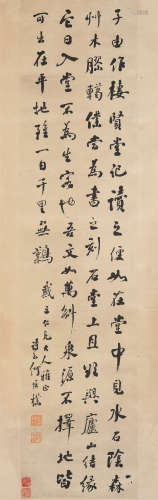 子由作棲賢堂記讀之便如在堂中見水石陰森
草木膠轕僕當為書之刻石堂上且欲與廬山結緣
它日入堂不為生客也吾文如萬斛泉源不擇地皆
可出在平地雖一日千里無難
戴立仁兄大人雅正
何維樸